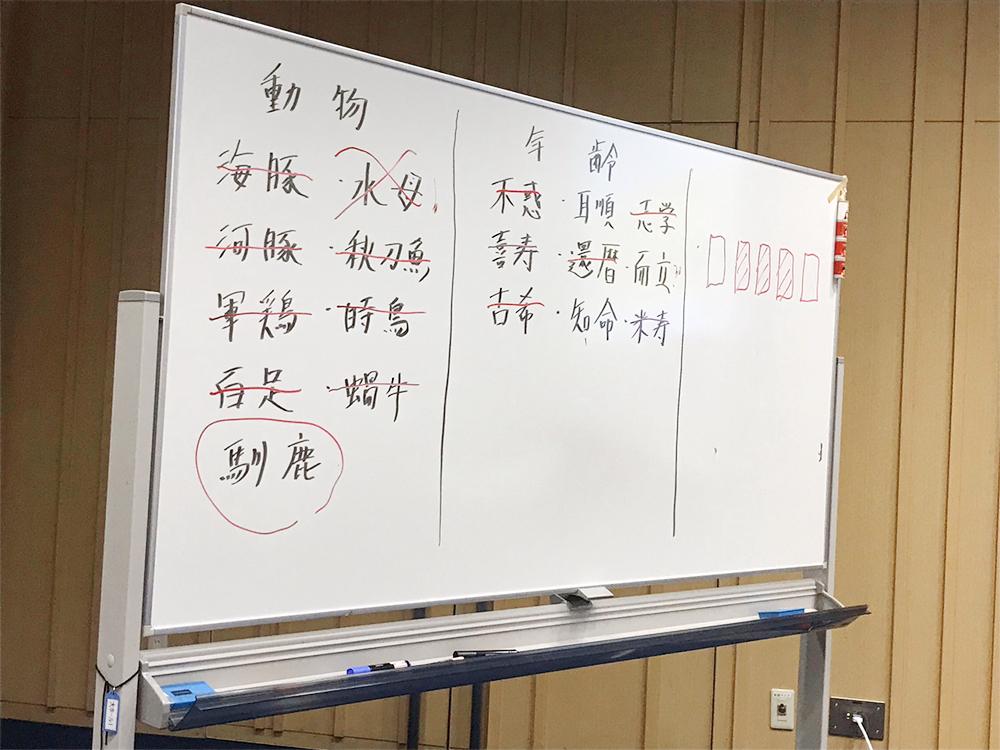 動物
海豚・水母
河豚・秋刀魚
軍鶏・時鳥
百足・蝸牛
馴鹿
年齢
不惑・耳順 志学
喜寿・還暦・而立
古希・知命・米寿